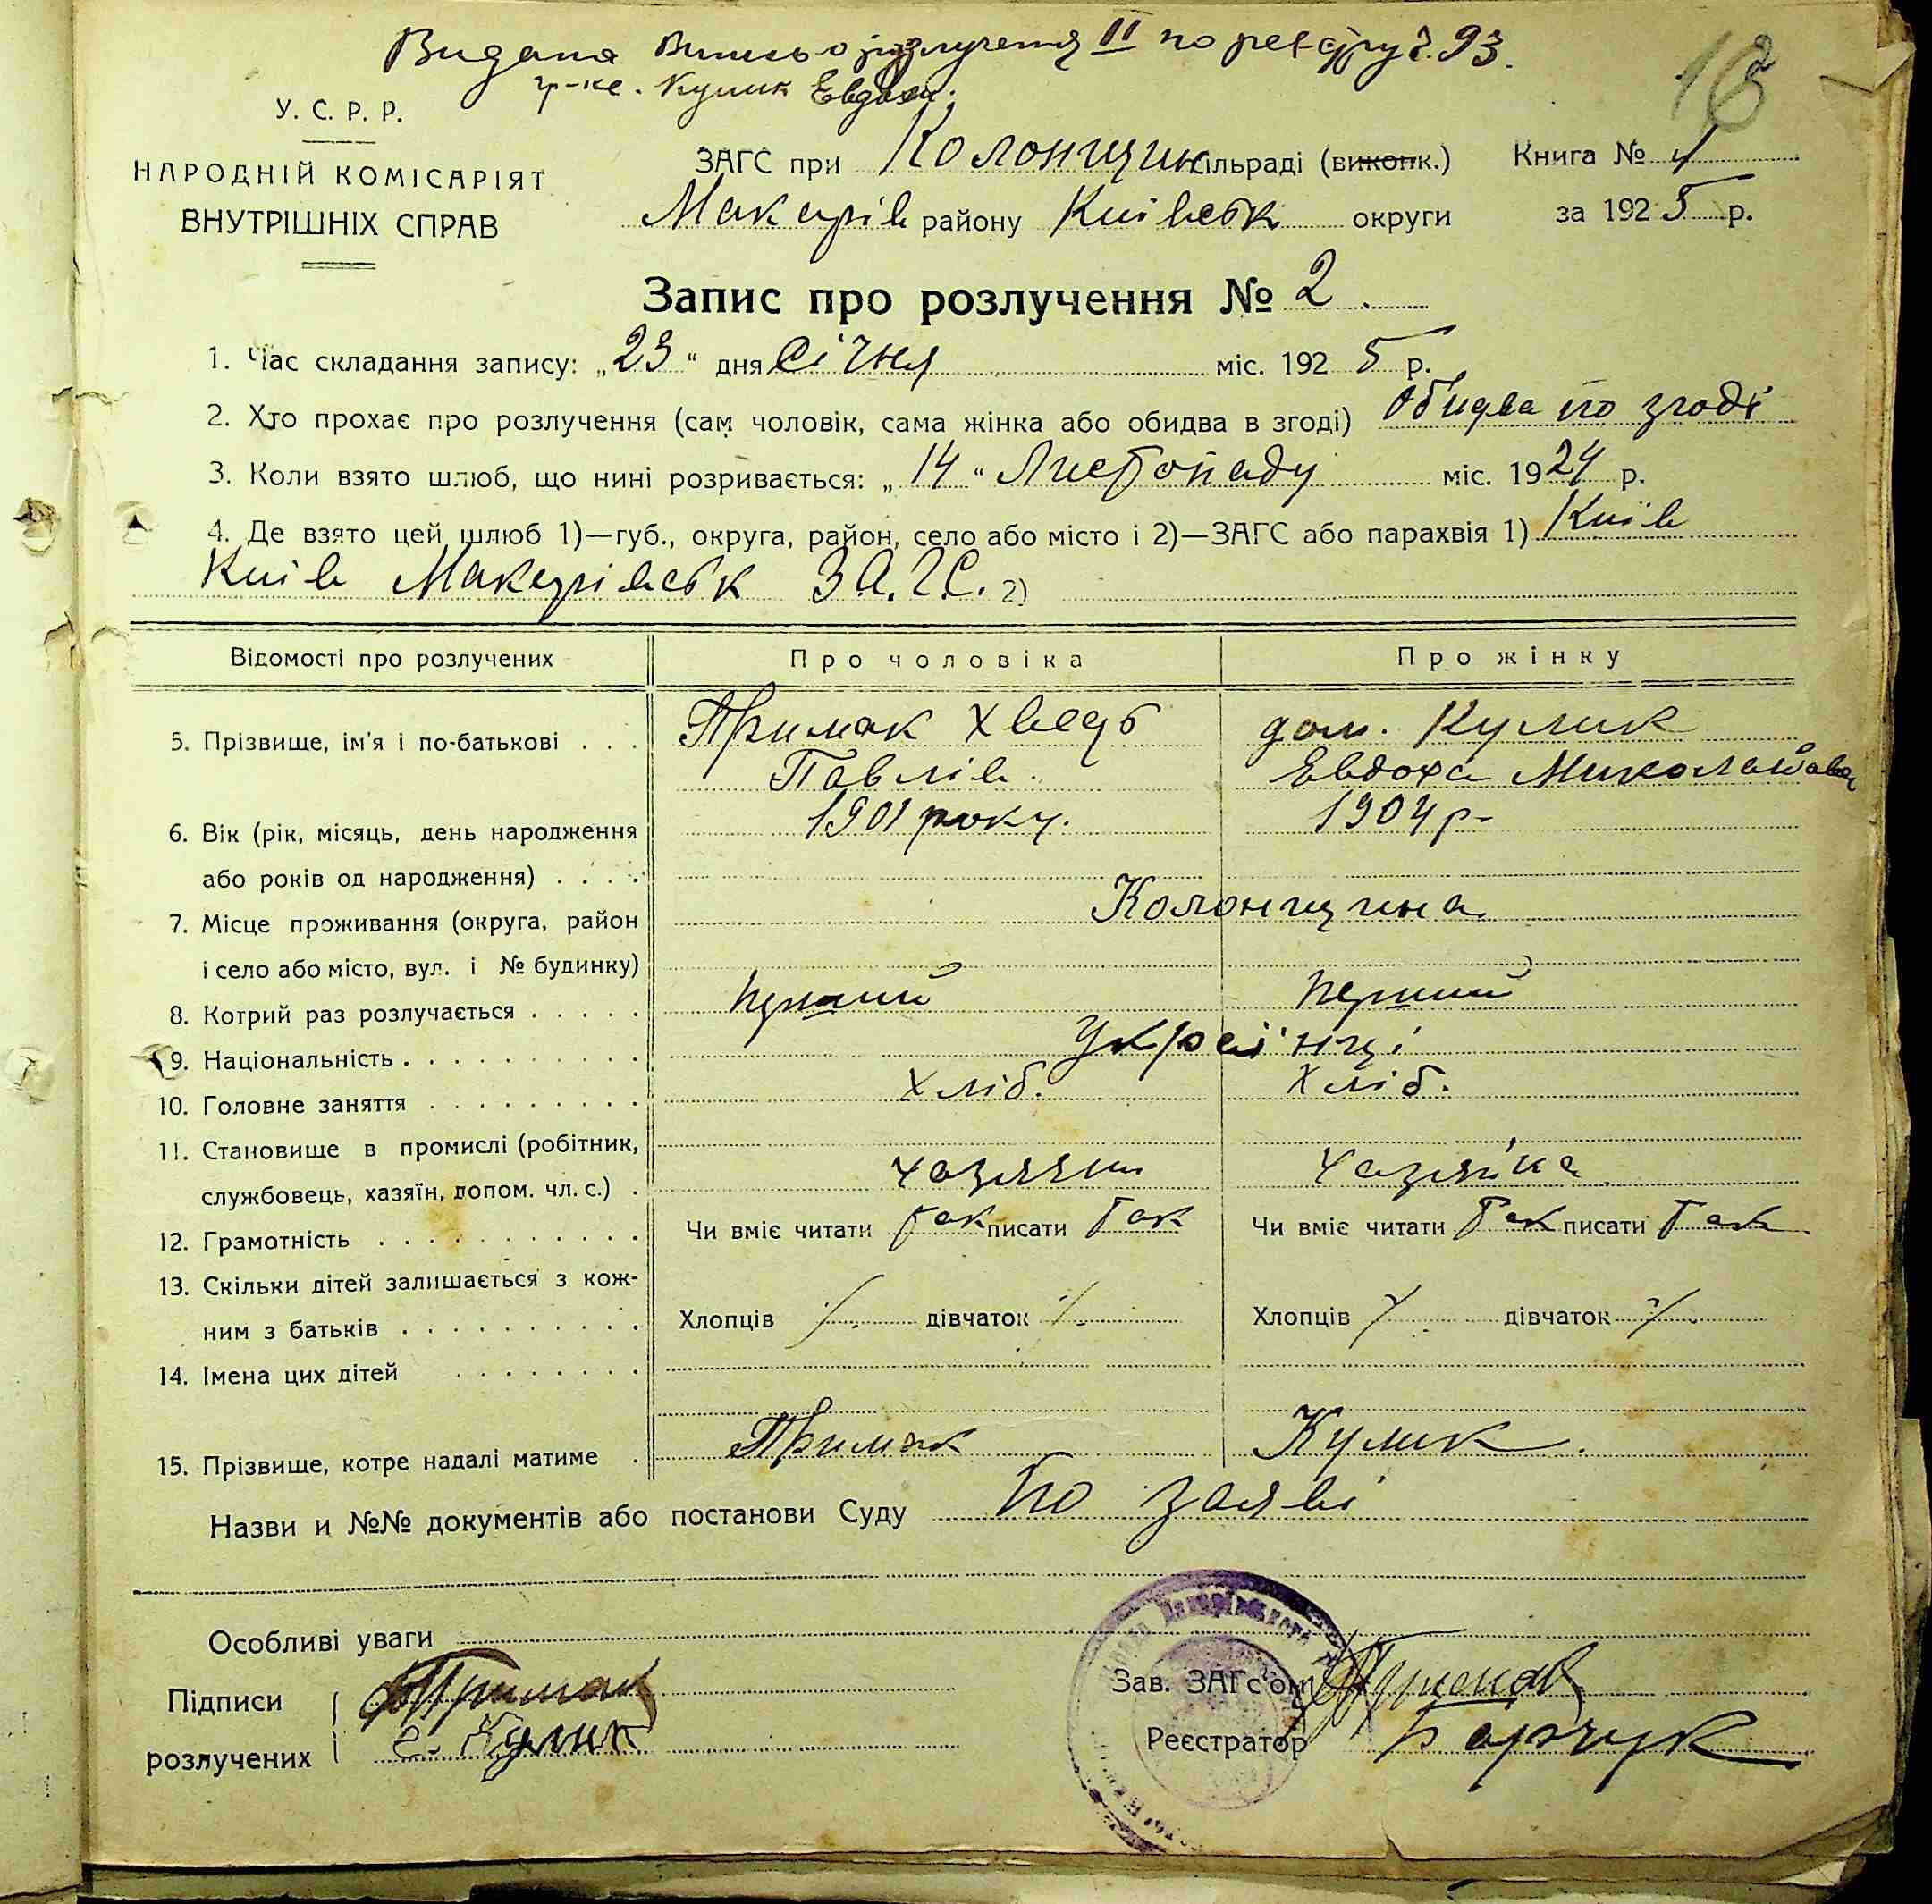 Видана Випись о розлучення II по реєстру č. 93.
гр-ке. Кулик Евдохи.
У. С. Р. Р.
НАРОДНІЙ КОМІСАРІЯТ
ВНУТРІШНІХ СПРАВ
ЗАГС при Колонщин сільраді (виконк.)
Макарів району Київськ округи
Книга № 1
за 1925 р.
Запис про розлучення № 2.
1. Час складання запису: „23“ дня січня міс. 1925 р.
2. Хто прохає про розлучення (сам чоловік, сама жінка або обидва в згоді) Обидва по згоді
3. Коли взято шлюб, що нині розривається: „14“ Листопаду міс. 1924 р.
4. Де взято цей шлюб 1)—губ., округа, район, село або місто і 2)—ЗАГС або парахвія 1) Київ
Київ Макарівськ З.А.Г.С. 2)
Відомості про розлучених Про чоловіка Про жінку
5. Прізвище, ім'я і по-батькові . . . Примак Хведь дом. Кулик
Павлів. Евдоха Миколаївова
6. Вік (рік, місяць, день народження 1901 року. 1904 р-
або років од народження) . . . .
7. Місце проживання (округа, район Колонщина
і село або місто, вул. і № будинку)
8. Котрий раз розлучається . . . . . перший перший
9. Національність . . . . . . . . . . Українці
10. Головне заняття . . . . . . . . . Хліб. Хліб.
11. Становище в промислі (робітник,
службовець, хазяїн, допом. чл. с.) . хазяїн хазяйка
12. Грамотність . . . . . . . . . . . Чи вміє читати так писати так Чи вміє читати так писати так
13. Скільки дітей залишається з кож-
ним з батьків . . . . . . . . . . Хлопців ⁒ дівчаток ⁒ Хлопців ⁒ дівчаток ⁒
14. Імена цих дітей . . . . . . . .
15. Прізвище, котре надалі матиме . Примак Кулик.
Назви и №№ документів або постанови Суду По заяві
Особливі уваги
Підписи Примак
розлучених Е. Кулик
Зав. ЗАГс'ом
Реєстратор Барчук